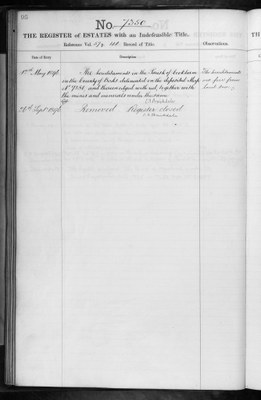 No. 7350
THE REGISTER of ESTATES with an Indefeasible Title.
Reference Vol. Record of Title.
Observations.
Date of Entry. Description
17th May 1898 The hereditaments in the Parish of Cookham The hereditaments
in the County of Berks delineated on the deposited Map are free from
No 7350, and thereon edged with red, together with land tax
the mines and minerals under the same
26th Sept 1898 Removed Register closed